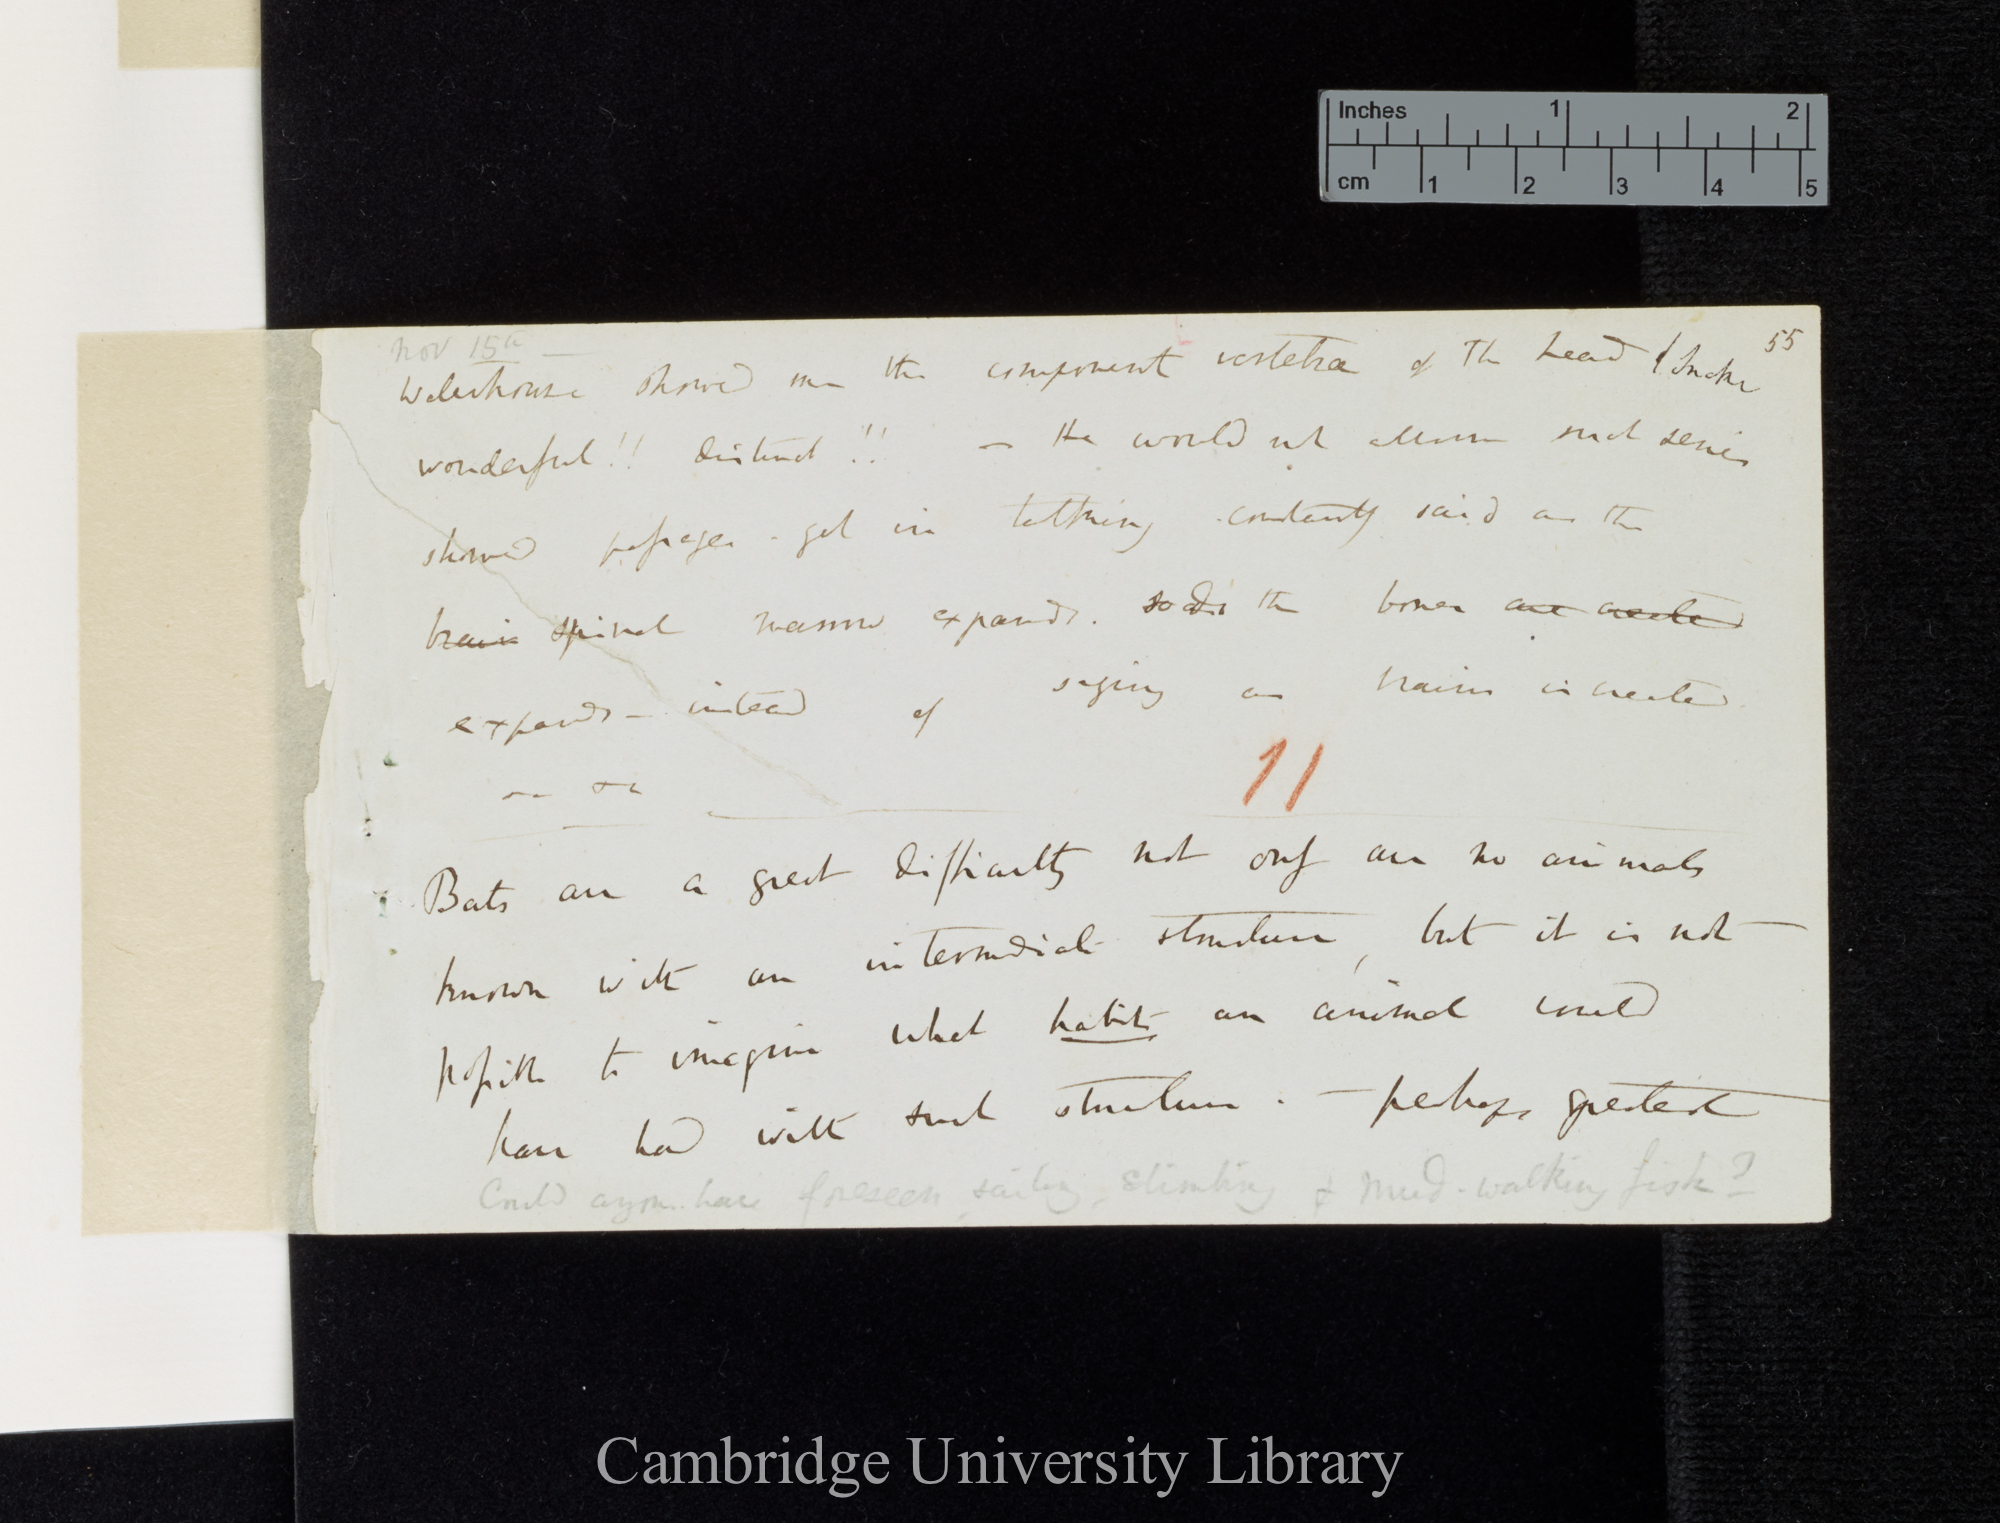 Inches 1 2
cm 1 2 3 4 5
55
Nov 15th —
Waterhouse showed me the component vertebrae of the head of Snake
wonderful!! distinct!! — He would not allow such series
showed passage. yet in talking constantly said as the
brain spinal marrow expands. so do the bones are created
expand — instead of saying as brain is created
11
Bats are a great difficulty not only are no animals
known with an intermediate structure, but it is not
possible to imagine what habits an animal could
have had with such structure. — perhaps greatest
Could anyone have foreseen, sailing, climbing & mud-walking fish?
Cambridge University Library